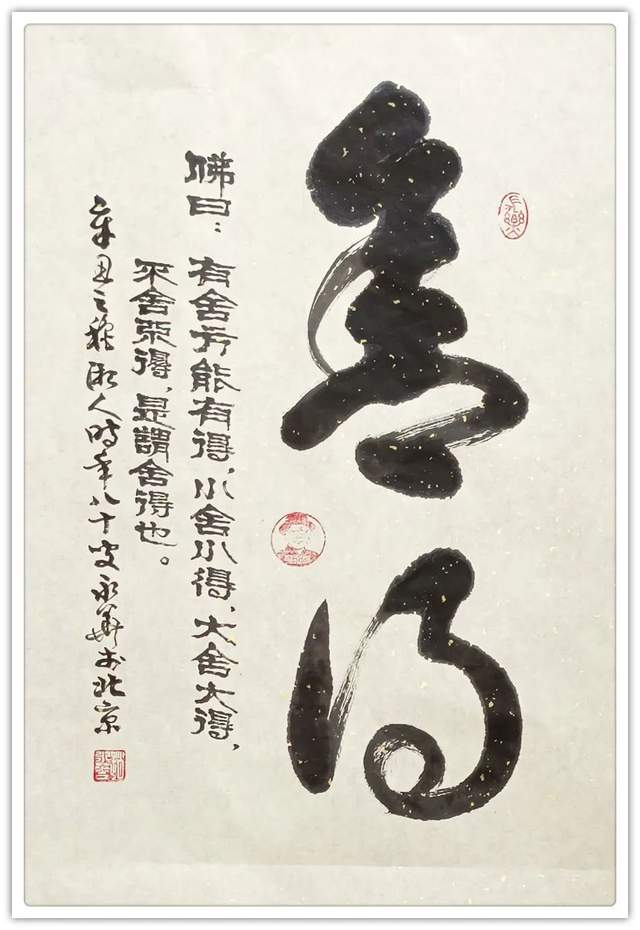 舍得
佛曰：有舍方能有得，小舍小得、大舍大得，
不舍不得，是謂舍得也。
辛丑之秋湘人時年八十叟永華於北京